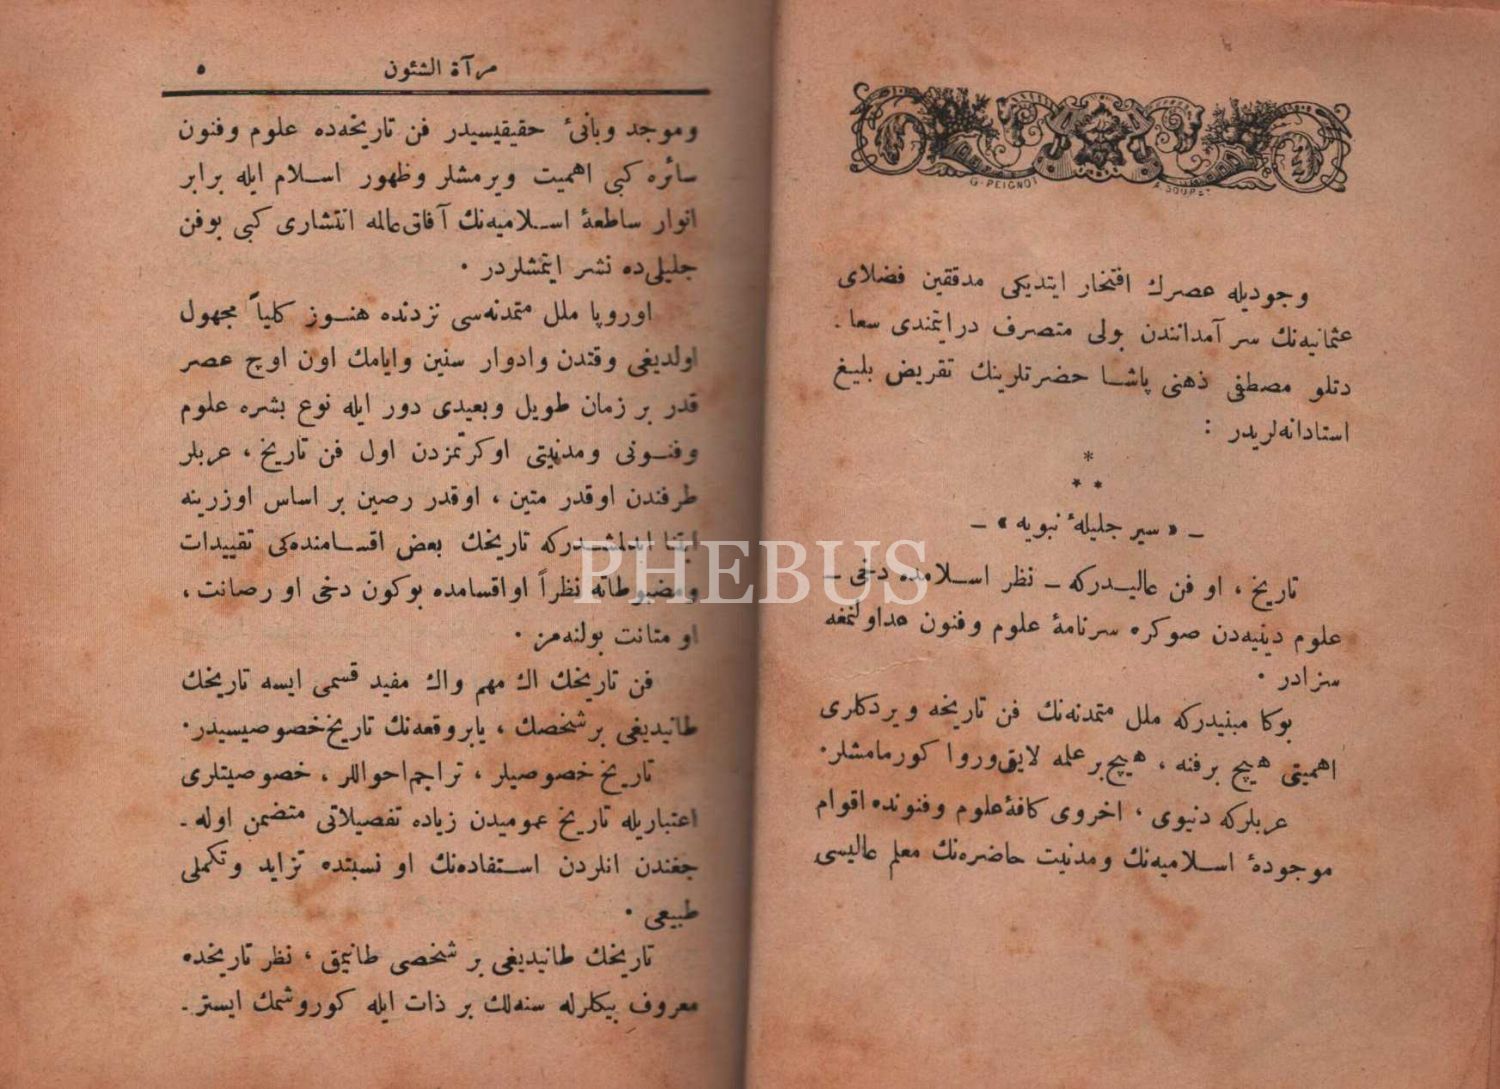 G. PEIGNOT
A. SOUPET
وجوديله عصرك افتخار ايتديكى مدققين فضلاى
عثمانيه‌نك سر آمدانندن بولى متصرف درايتمندى سعا ـ
دتلو مصطفى ذهنى پاشا حضرتلرينك تقريض بليغ
استادانه‌لريدر :
* * *
ـ « سير جليلۀ نبويه » ـ
تاريخ ، او فن عاليدركه ـ نظر اسلامده دخى ـ
علوم دينيه‌دن صوكره سرنامۀ علوم وفنون عداولنمغه
سزادر .
بوكا مبنيدركه ملل متمدنه‌نك فن تاريخه ويردكلرى
اهميتى هيچ برفنه ، هيچ‌برعلمه لايق‌وروا كورمامشلر .
عربلركه دنيوى ، اخروى كافۀ علوم وفنونده اقوام
موجودۀ اسلاميه‌نك ومدنيت حاضره‌نك معلم عاليسى
مرآة الشئون ٥
وموجد وبانئ حقيقيسيدر فن تاريخه‌ده علوم وفنون
سائره كبى اهميت ويرمشلر وظهور اسلام ايله برابر
انوار ساطعۀ اسلاميه‌نك آفاق‌عالمه انتشارى كبى بوفن
جليلى‌ده نشر ايتمشلردر .
اوروپا ملل متمدنه‌سى نزدنده هنوز كلياً مجهول
اولديغى وقتدن وادوار سنين وايامك اون اوچ عصر
قدر بر زمان طويل وبعيدى دور ايله نوع بشره علوم
وفنونى ومدنيتى اوكرتمزدن اول فن تاريخ ، عربلر
طرفندن اوقدر متين ، اوقدر رصين بر اساس اوزرينه
ابتنا ايدلمشدركه تاريخك بعض اقسامنده‌كى تقييدات
ومضبوطاته نظراً اواقسامده بوكون دخى او رصانت ،
او متانت بولنه‌مز .
فن تاريخك اك مهم واك مفيد قسمى ايسه تاريخك
طانيديغى برشخصك ، يابروقعه‌نك تاريخ‌خصوصيسيدر .
تاريخ خصوصيلر ، تراجم‌احواللر ، خصوصيتلرى
اعتباريله تاريخ عموميدن زياده تفصيلاتى متضمن اوله ـ
جغندن انلردن استفاده‌نك او نسبتده تزايد وتكملى
طبيعى .
تاريخك طانيديغى بر شخصى طانيمق ، نظر تاريخده
معروف بيكلرله سنه‌لك بر ذات ايله كوروشمك ايستر ـ
PHEBUS